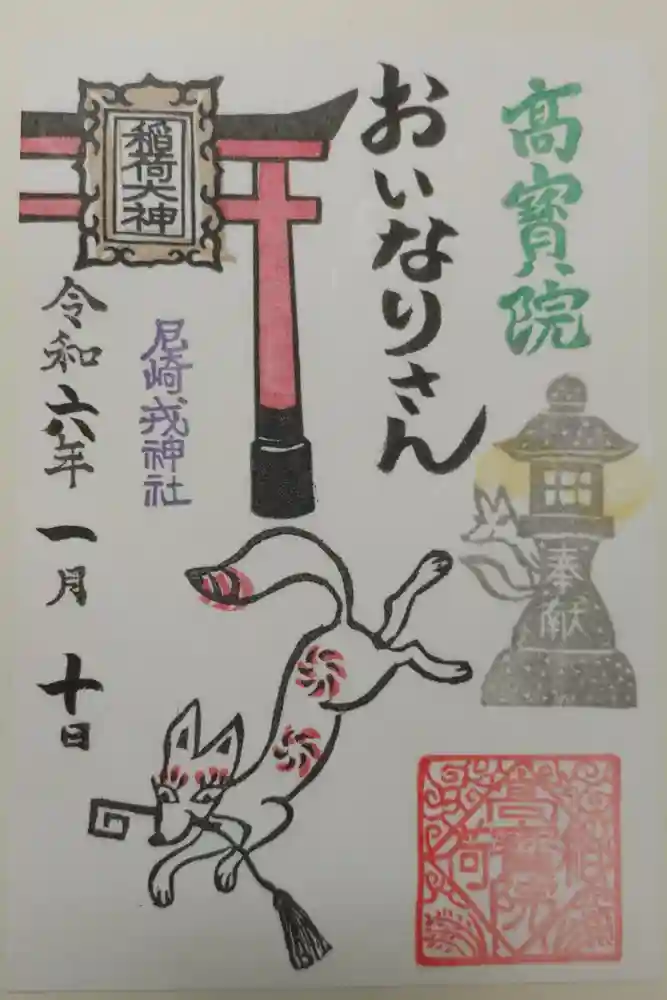 高寳院
おいなりさん
稲荷大神
尼崎戎神社
令和六年 一月 十日
奉献
高寳院